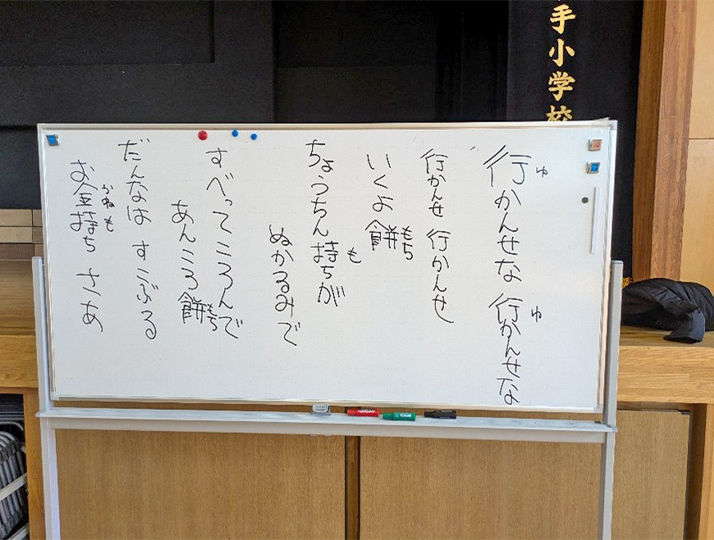 手小学校
行かんせな 行かんせな
ゆ ゆ
行かんせ 行かんせ
いくよ餅
もち
ちょうちん持ちが
も
ぬかるみで
すべってころんで
あんころ餅
もち
だんなは すこぶる
お金持ち さあ
かねも